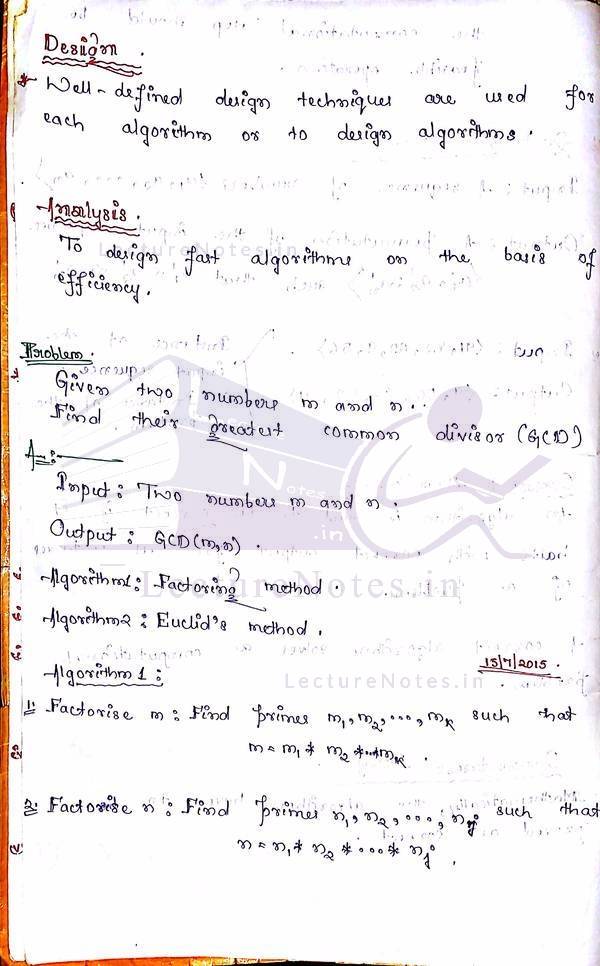 Design.
* Well-defined design techniques are used for
each algorithm or to design algorithms.
Analysis.
LectureNotes.in
To design fast algorithms on the basis of
efficiency.
Problem.
Given two numbers m and n..
Find their greatest common divisor (GCD)
A:-
Lecture
Notes
.in
Input : Two numbers m and n.
Output : GCD(m,n).
Algorithm1: Factoring method
LectureNotes.in
Algorithm2 : Euclid's method.
15/7/2015.
Algorithm 1 :
LectureNotes.in
1: Factorise m : Find primes m₁, m₂, ..., mₖ such that
m = m₁ * m₂ *...mₖ.
2: Factorise n : Find primes n₁, n₂, ..., nⱼ such that
n = n₁ * n₂ * ... * nⱼ.